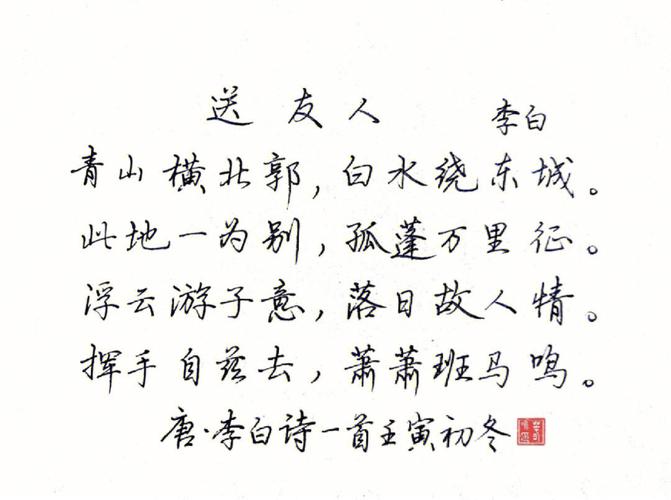 送友人 李白
青山横北郭,白水绕东城。
此地一为别,孤蓬万里征。
浮云游子意,落日故人情。
挥手自兹去,萧萧班马鸣。
唐·李白诗一首壬寅初冬